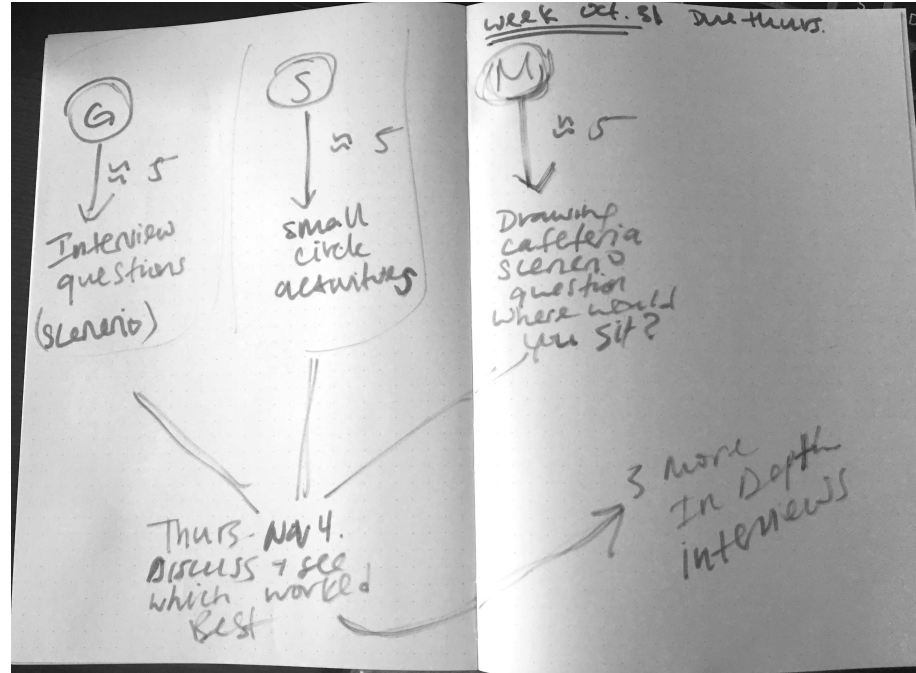 week Oct. 31 Due thurs.
G
≈ 5
Interview
questions
(scenerio)
S
≈ 5
small
circle
activities
M
≈ 5
Drawing
cafeteria
scenerio
question
where would
you sit?
Thurs- Nov 4.
Discuss + see
which worked
Best
3 more
In Depth
interviews